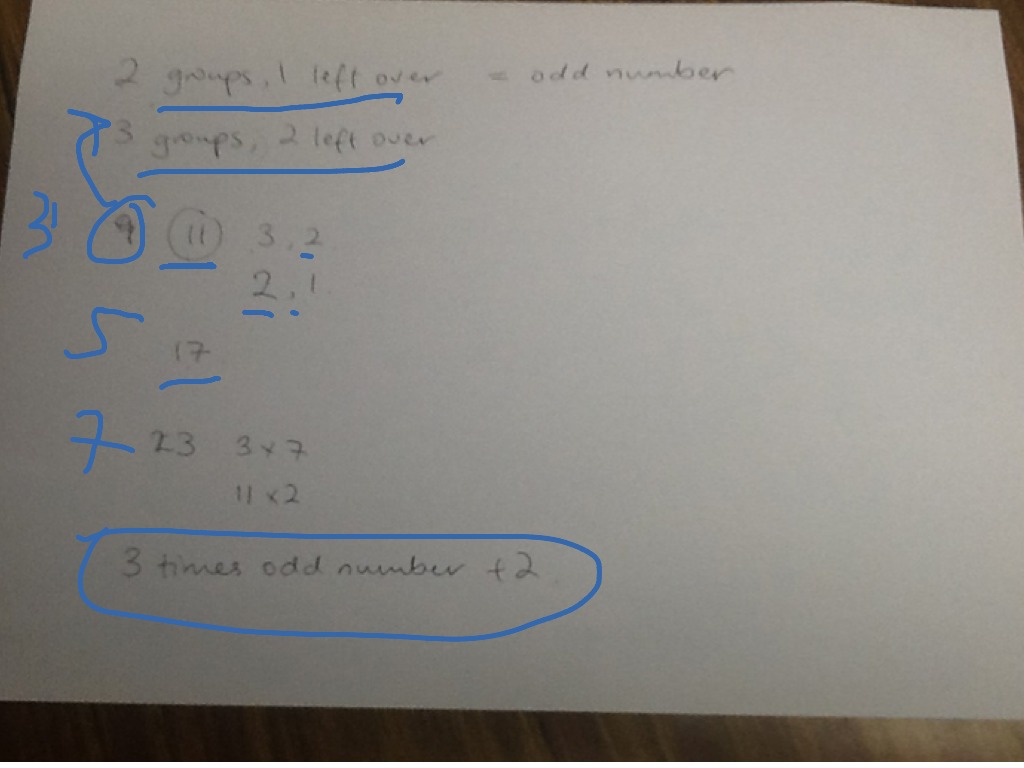 2 groups, 1 left over = odd number
3 groups, 2 left over
3 9 11 3, 2
2, 1
5 17
7 23 3 x 7
11 x 2
3 times odd number + 2